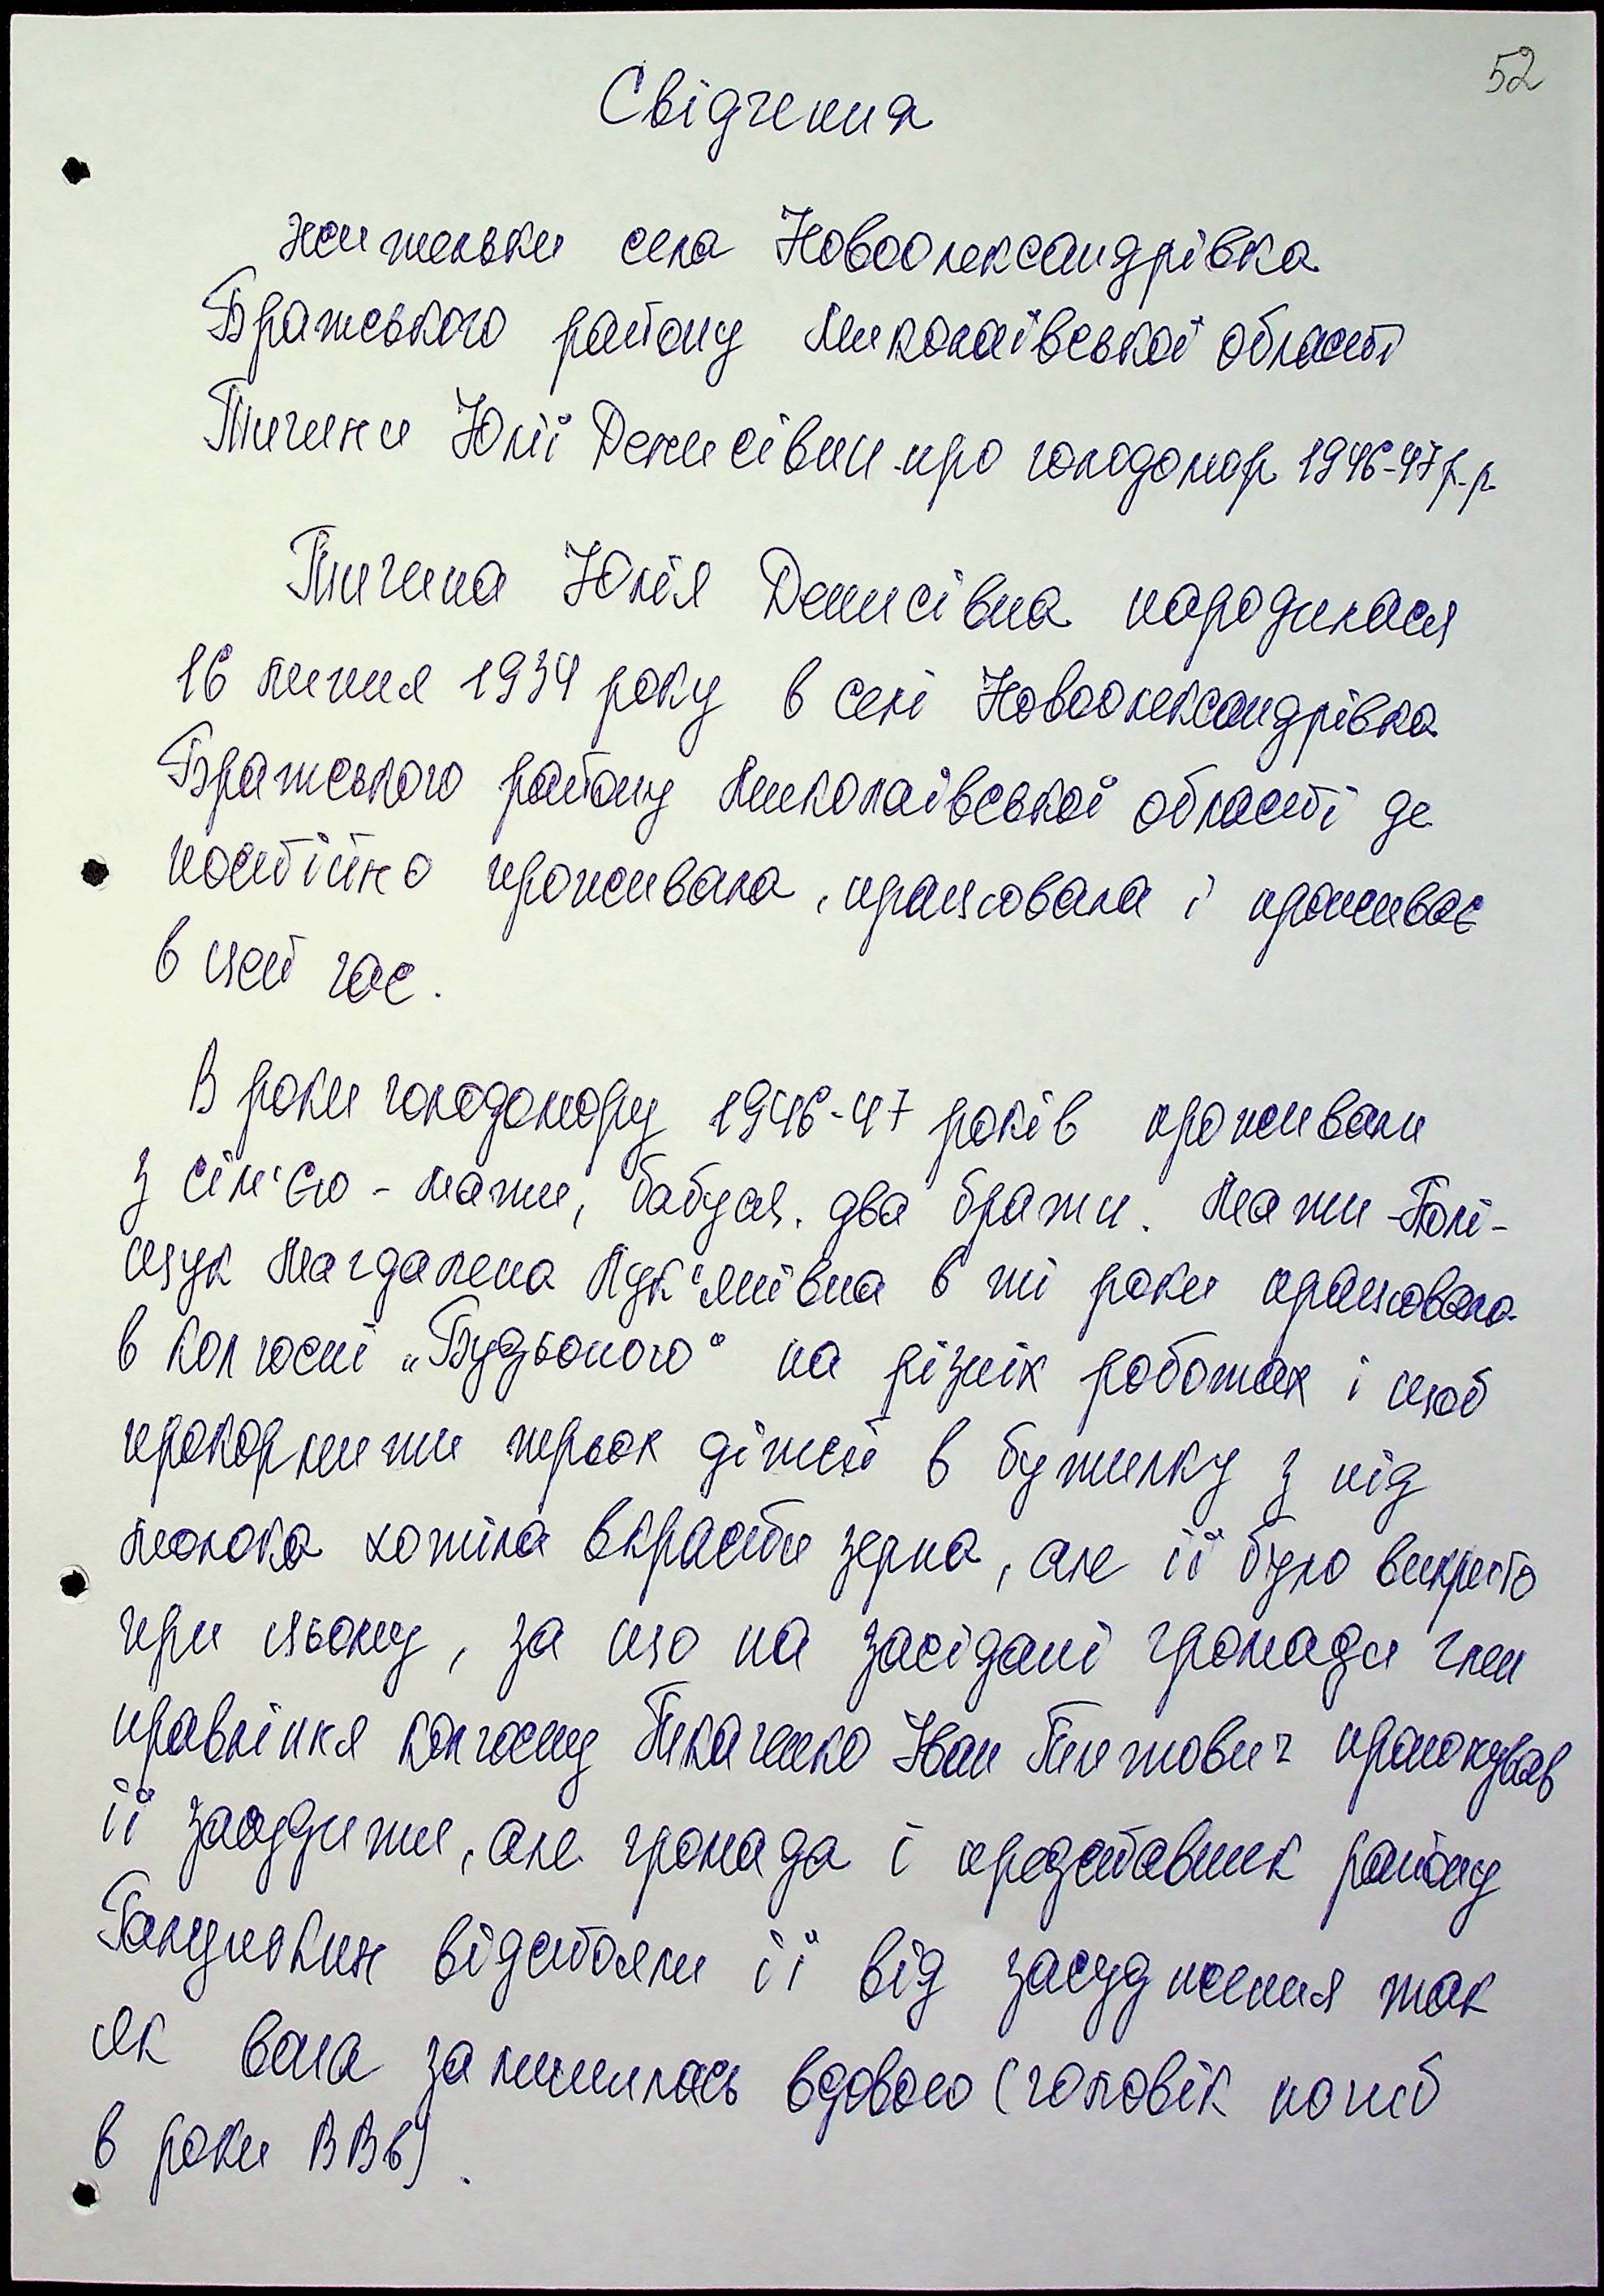 52
Свідчення
жительки села Новоолександрівка
Братського району Миколаївської області
Тичини Юлії Денисівни про голодомор 1946-47 р.р.
Тичина Юлія Денисівна народилася
16 липня 1934 року в селі Новоолександрівка
Братського району Миколаївської області де
постійно проживала, працювала і проживає
в цей час.
В роки голодомору 1946-47 років проживали
з сім'єю - мати, бабуся, два брати. Мати - Полі-
щук Магдалена Лук'янівна в ті роки працювала
в колгоспі „Будьоного" на різніх роботах і щоб
прокормити трьох дітей в бутилку з під
молока хотіла вкрасти зерна, але її було викрито
при цьому, за що на засідані громади член
правління колгоспу Ткаченко Іван Титович пропонував
її засудити, але громада і представник району
відстояли її від засудження так
як вона залишилась вдовою (чоловік погиб
в роки ВВв).